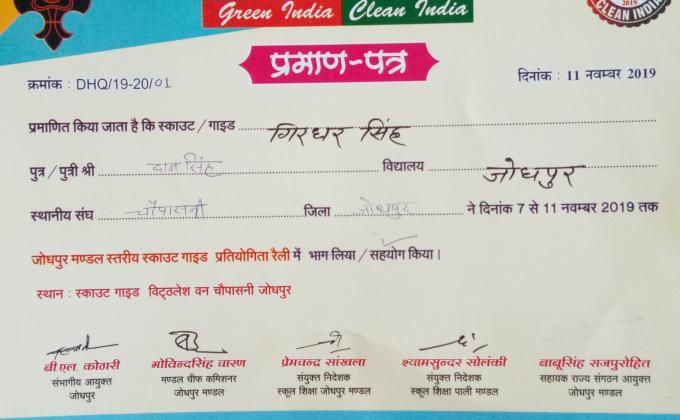 Green India Clean India
2019
CLEAN INDIA
प्रमाण-पत्र
क्रमांक : DHQ/19-20/01 दिनांक : 11 नवम्बर 2019
प्रमाणित किया जाता है कि स्काउट / गाइड गिरधर सिंह
पुत्र / पुत्री श्री दान सिंह विद्यालय जोधपुर
स्थानीय संघ चौपासनी जिला जोधपुर ने दिनांक 7 से 11 नवम्बर 2019 तक
जोधपुर मण्डल स्तरीय स्काउट गाइड प्रतियोगिता रैली में भाग लिया / सहयोग किया।
स्थान : स्काउट गाइड विट्ठलेश वन चौपासनी जोधपुर
बी.एल. कोठारी गोविन्दसिंह चारण प्रेमचन्द्र सांखला श्यामसुन्दर सोलंकी बाबूसिंह राजपुरोहित
संभागीय आयुक्त मण्डल चीफ कमिशनर संयुक्त निदेशक संयुक्त निदेशक सहायक राज्य संगठन आयुक्त
जोधपुर जोधपुर मण्डल स्कूल शिक्षा जोधपुर मण्डल स्कूल शिक्षा पाली मण्डल जोधपुर मण्डल